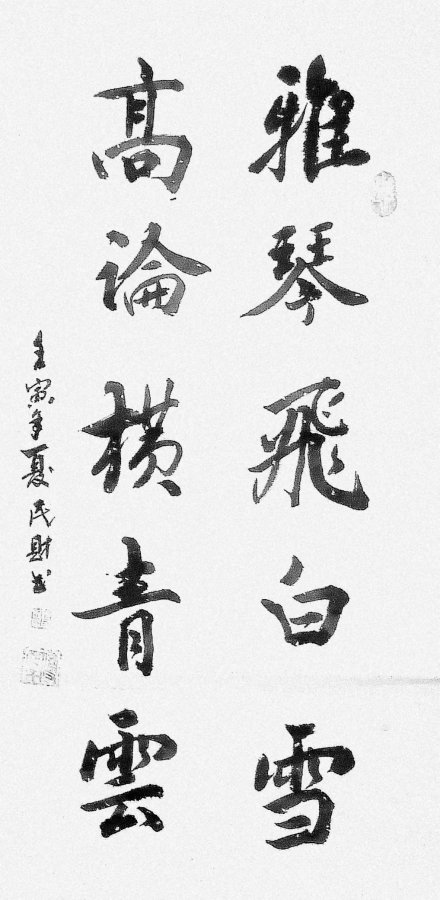 雅琴飛白雪
高論橫青雲
壬寅年夏民財書